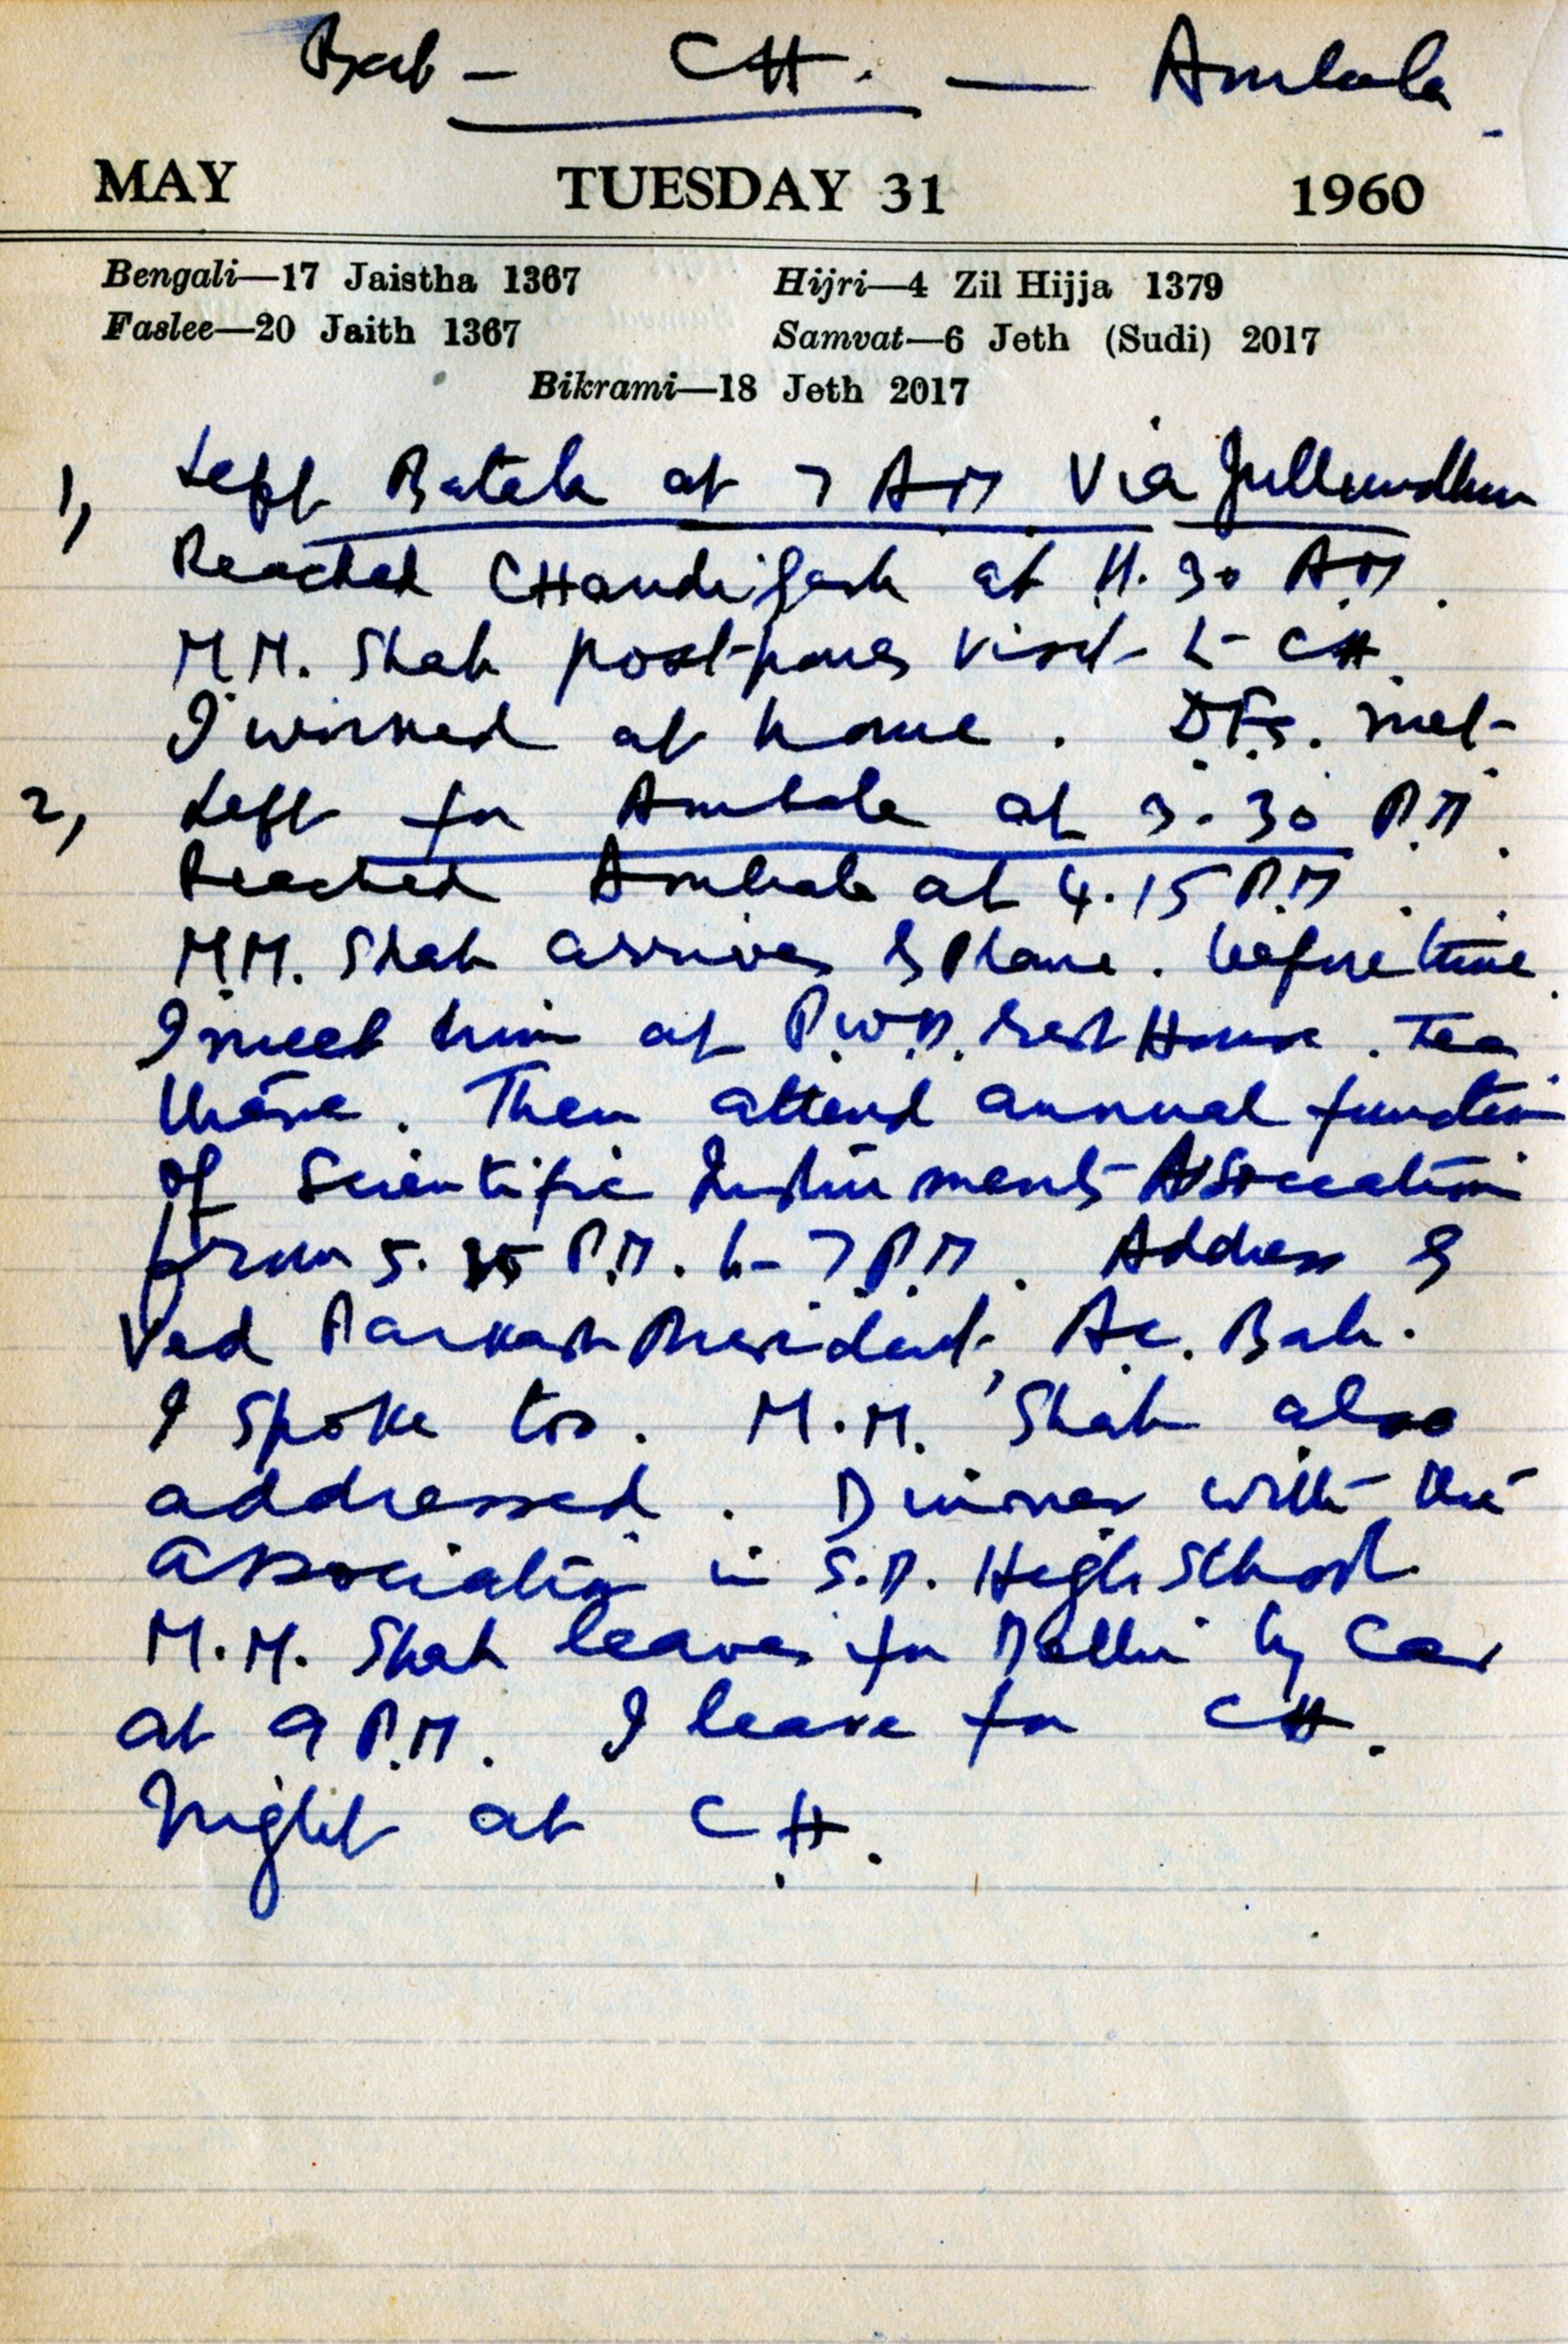 Bat - CH. - Ambala
MAY TUESDAY 31 1960
Bengali—17 Jaistha 1367 Hijri—4 Zil Hijja 1379
Faslee—20 Jaith 1367 Samvat—6 Jeth (Sudi) 2017
Bikrami—18 Jeth 2017
1, Left Batala at 7 AM Via Jullundhur
Reached CHandigarh at 11.30 AM.
M.M. Shah postpones visit to CH.
I worked at home. met
2, Left for Ambala at 3.30 P.M.
Reached Ambala at 4.15 P.M.
M.M. Shah arrives by Plane. before time.
I meet him at P.W.D. Rest House. Tea
there. Then attend annual function
of Scientific Instruments Association
from 5. P.M. to 7 P.M. Address by
Ved Parkash President,
I spoke too. M.M. Shah also
addressed. Dinner with the
association in S.D. High School.
M.M. Shah leaves for Delhi by Car
at 9 P.M. I leave for CH.
Night at CH.